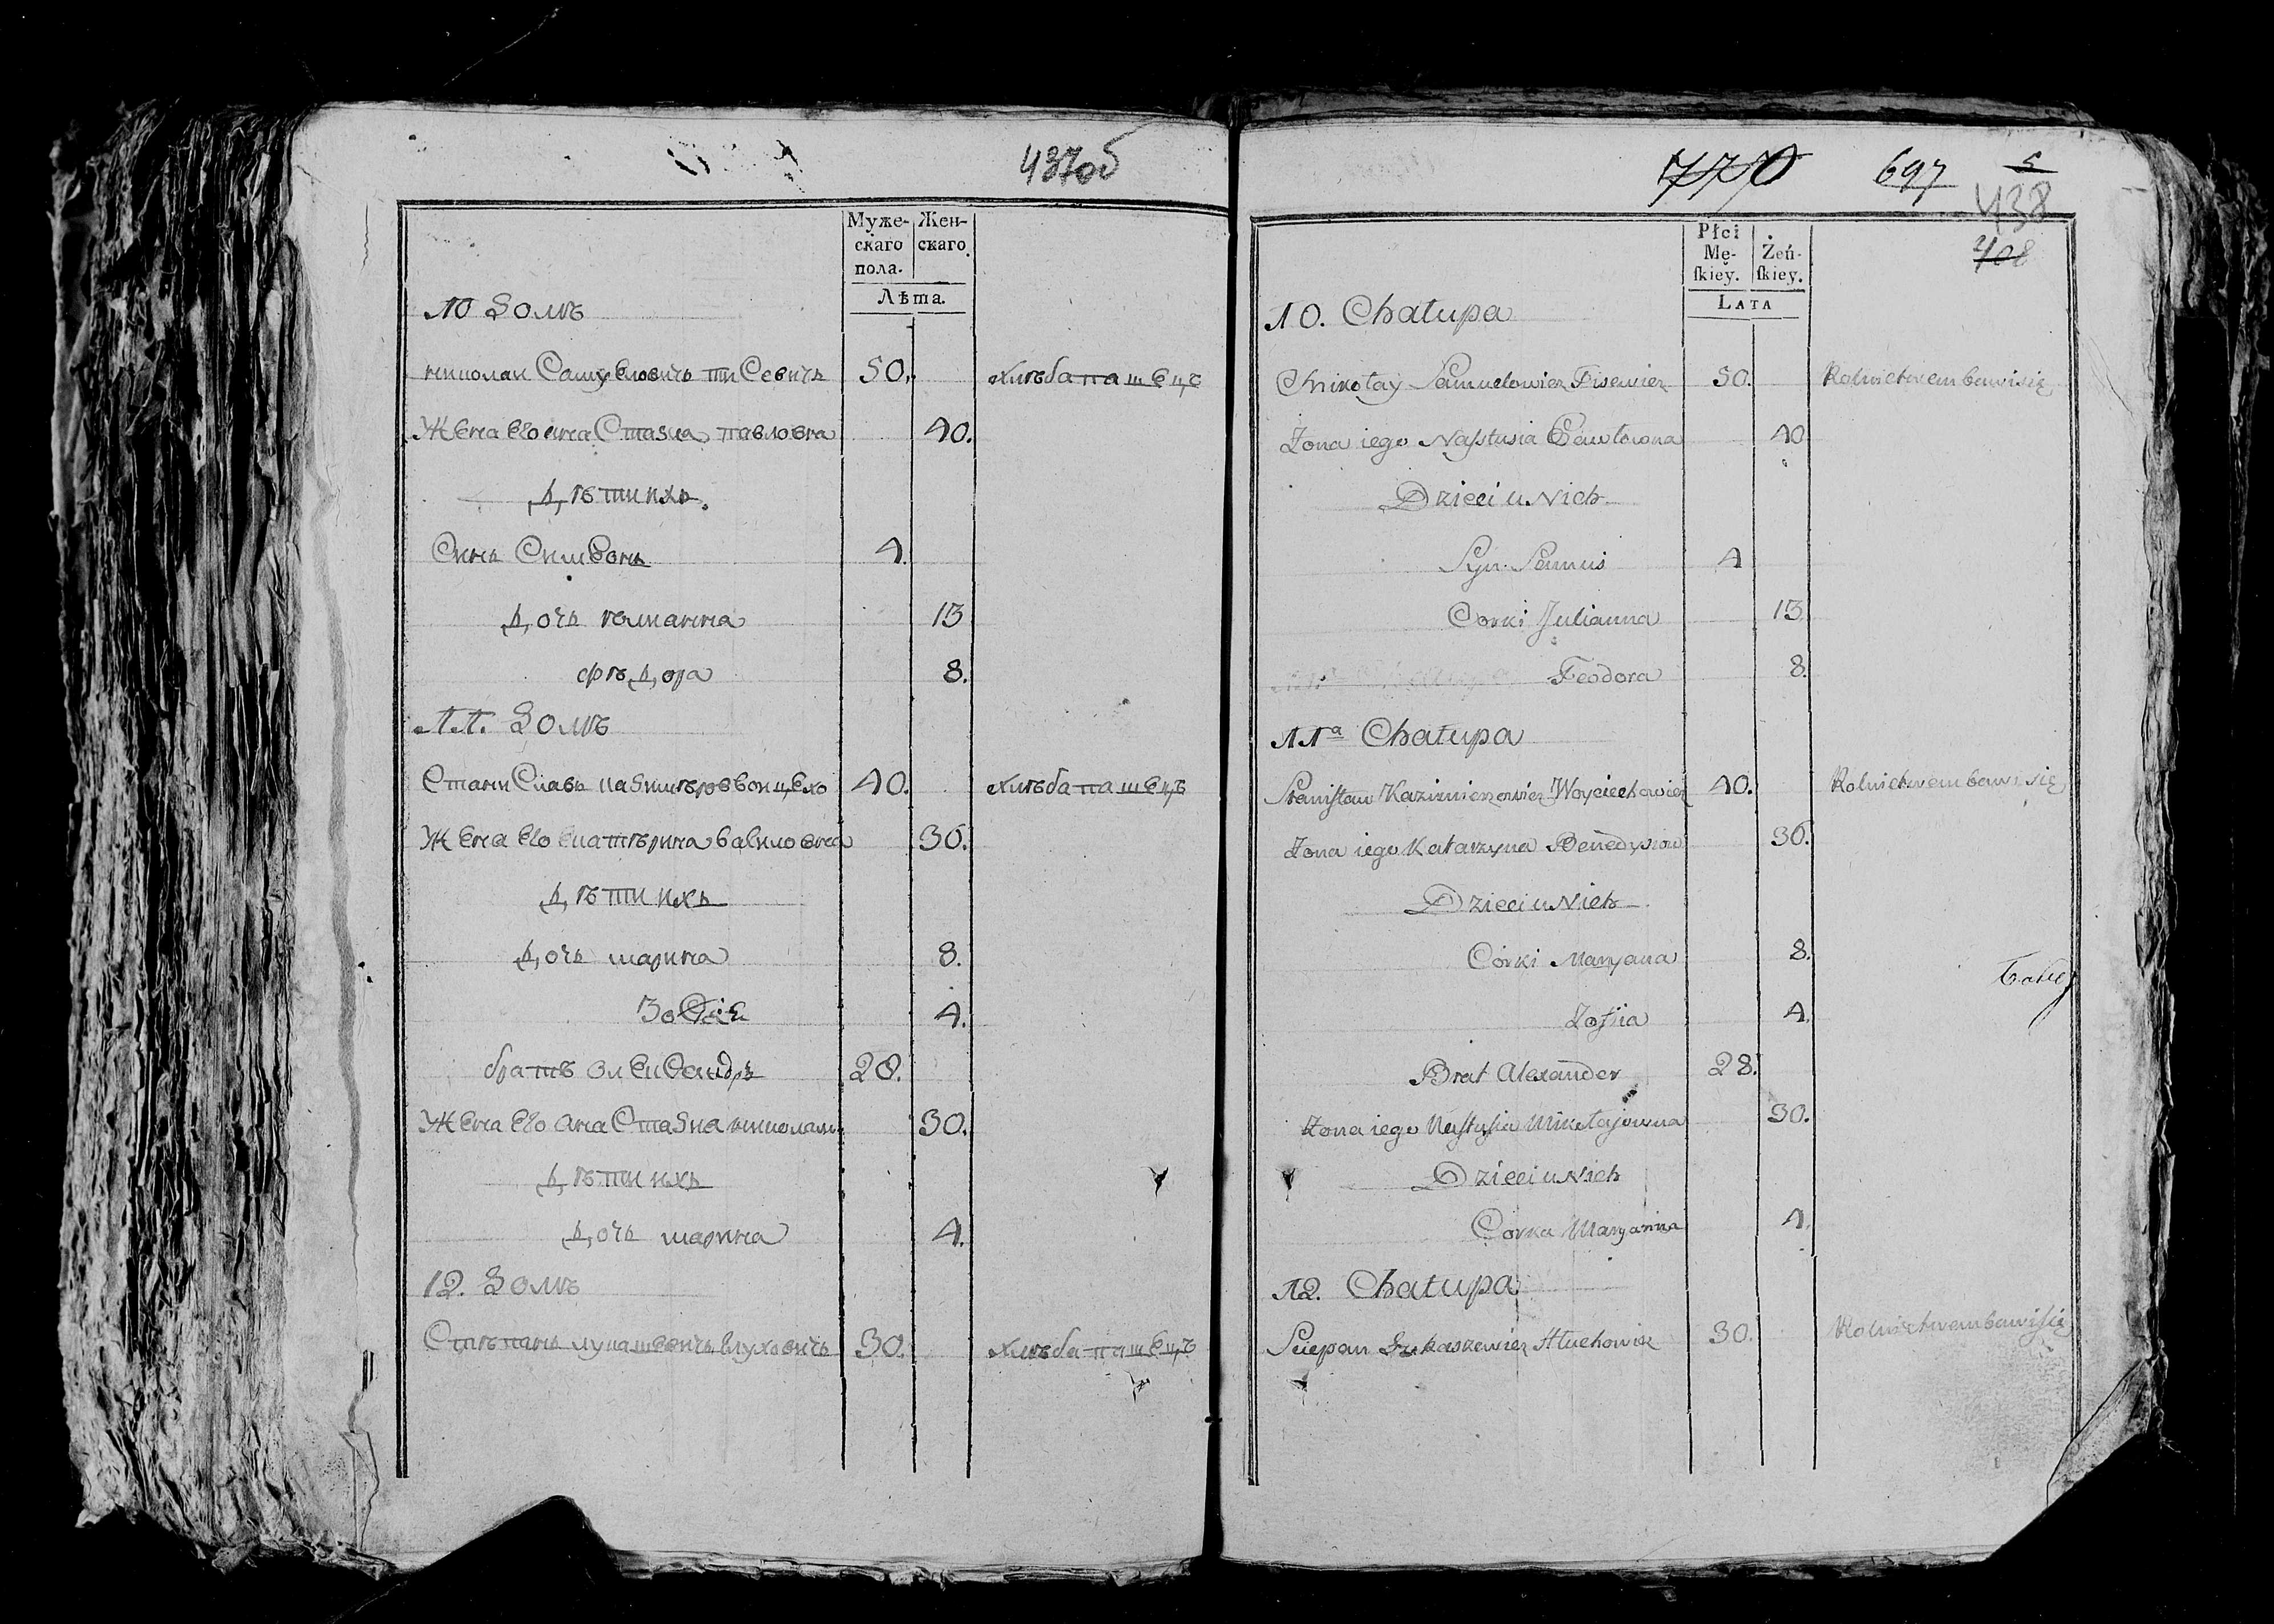 437об
Муже-
скаго
пола.
Жен-
скаго.
Лѣта.
10 Домъ
николаи Самуеловичь тиСевичь 50. хлѣбапашецъ
Жена Его наСтазиа павловна 40.
дѣти ихъ.
Синь Симеонъ 4.
дочь юлианна 13
фѣдора 8.
11. Домъ
СтаниСлавь казимѣров воицехо 40. хлѣбапашецъ
Жена Его Екатѣрина 36.
дѣти ихъ
дочь марина 8.
Зофiе 4.
братъ 28.
Жена Его анаСтазиа николаи 30.
дѣти ихъ
дочь марина 4.
12. Домъ
Стѣпань лукашевичь глуховичь 30. хлѣба пашецъ
770 697 5
438
408
Płci
Mę-
ſkiey.
Żeń-
ſkiey.
LATA
10. Chałupa
Mikołay Samuelowicz Tisewicz 50. Rolnictwem bawi się
Żona iego Naſtusia Pawłowna 40
Dzieci u Nich
Syn Samuś 4
Corki Julianna 13
Feodora 8.
11ᵃ Chałupa
Staniſław Kazimierzowicz Woyciechowicz 40. Rolnictwem bawi się
Żona iego Katarzyna 36.
Dzieci u Nich
Córki Maryana 8.
Zofia 4.
Brat Alexander 28.
Żona iego Naſtuſia Mikołajowna 30.
Dzieci u Nich
Corka Maryanna 4.
12. Chałupa
Sciepan Łukaszewicz Hłuchowicz 30. Rolnictwem bawi ſię